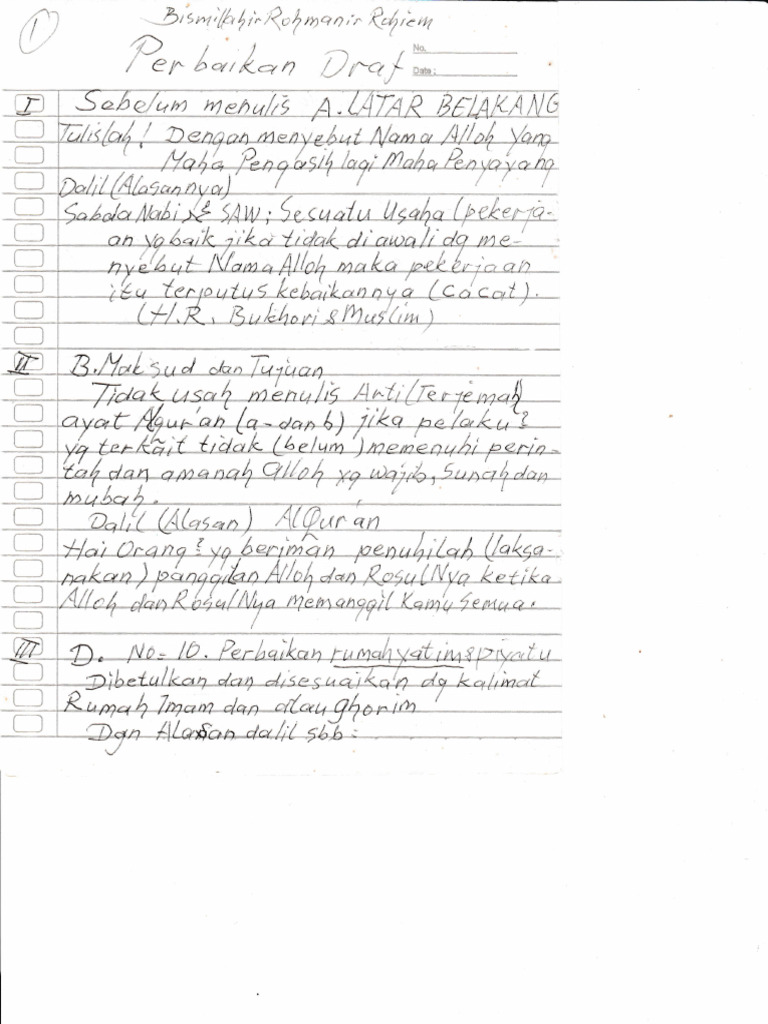 1
Bismillahir Rohmanir Rohiem
Perbaikan Draf
No.
Date :
I Sebelum menulis A. LATAR BELAKANG
Tulislah! Dengan menyebut Nama Alloh Yang
Maha Pengasih lagi Maha Penyayang
Dalil (Alasannya)
Sabda Nabi SAW; Sesuatu Usaha (pekerja-
an yg baik jika tidak di awali dg me-
nyebut Nama Alloh maka pekerjaan
itu terputus kebaikannya (cacat).
(H.R. Bukhori & Muslim)
II B. Maksud dan Tujuan
Tidak usah menulis Arti (Terjemah)
ayat Alqur'an (a-dan b) jika pelaku²
yg terkait tidak (belum) memenuhi perin-
tah dan amanah Alloh yg wajib, Sunah dan
mubah.
Dalil (Alasan) AlQur'an
Hai Orang² yg beriman penuhilah (laksa-
nakan) panggilan Alloh dan RosulNya ketika
Alloh dan RosulNya memanggil Kamu Semua.
III D. No = 10. Perbaikan rumah yatim & piyatu
Dibetulkan dan disesuaikan dg kalimat
Rumah Imam dan atau ghorim
Dgn Alasan dalil sbb :